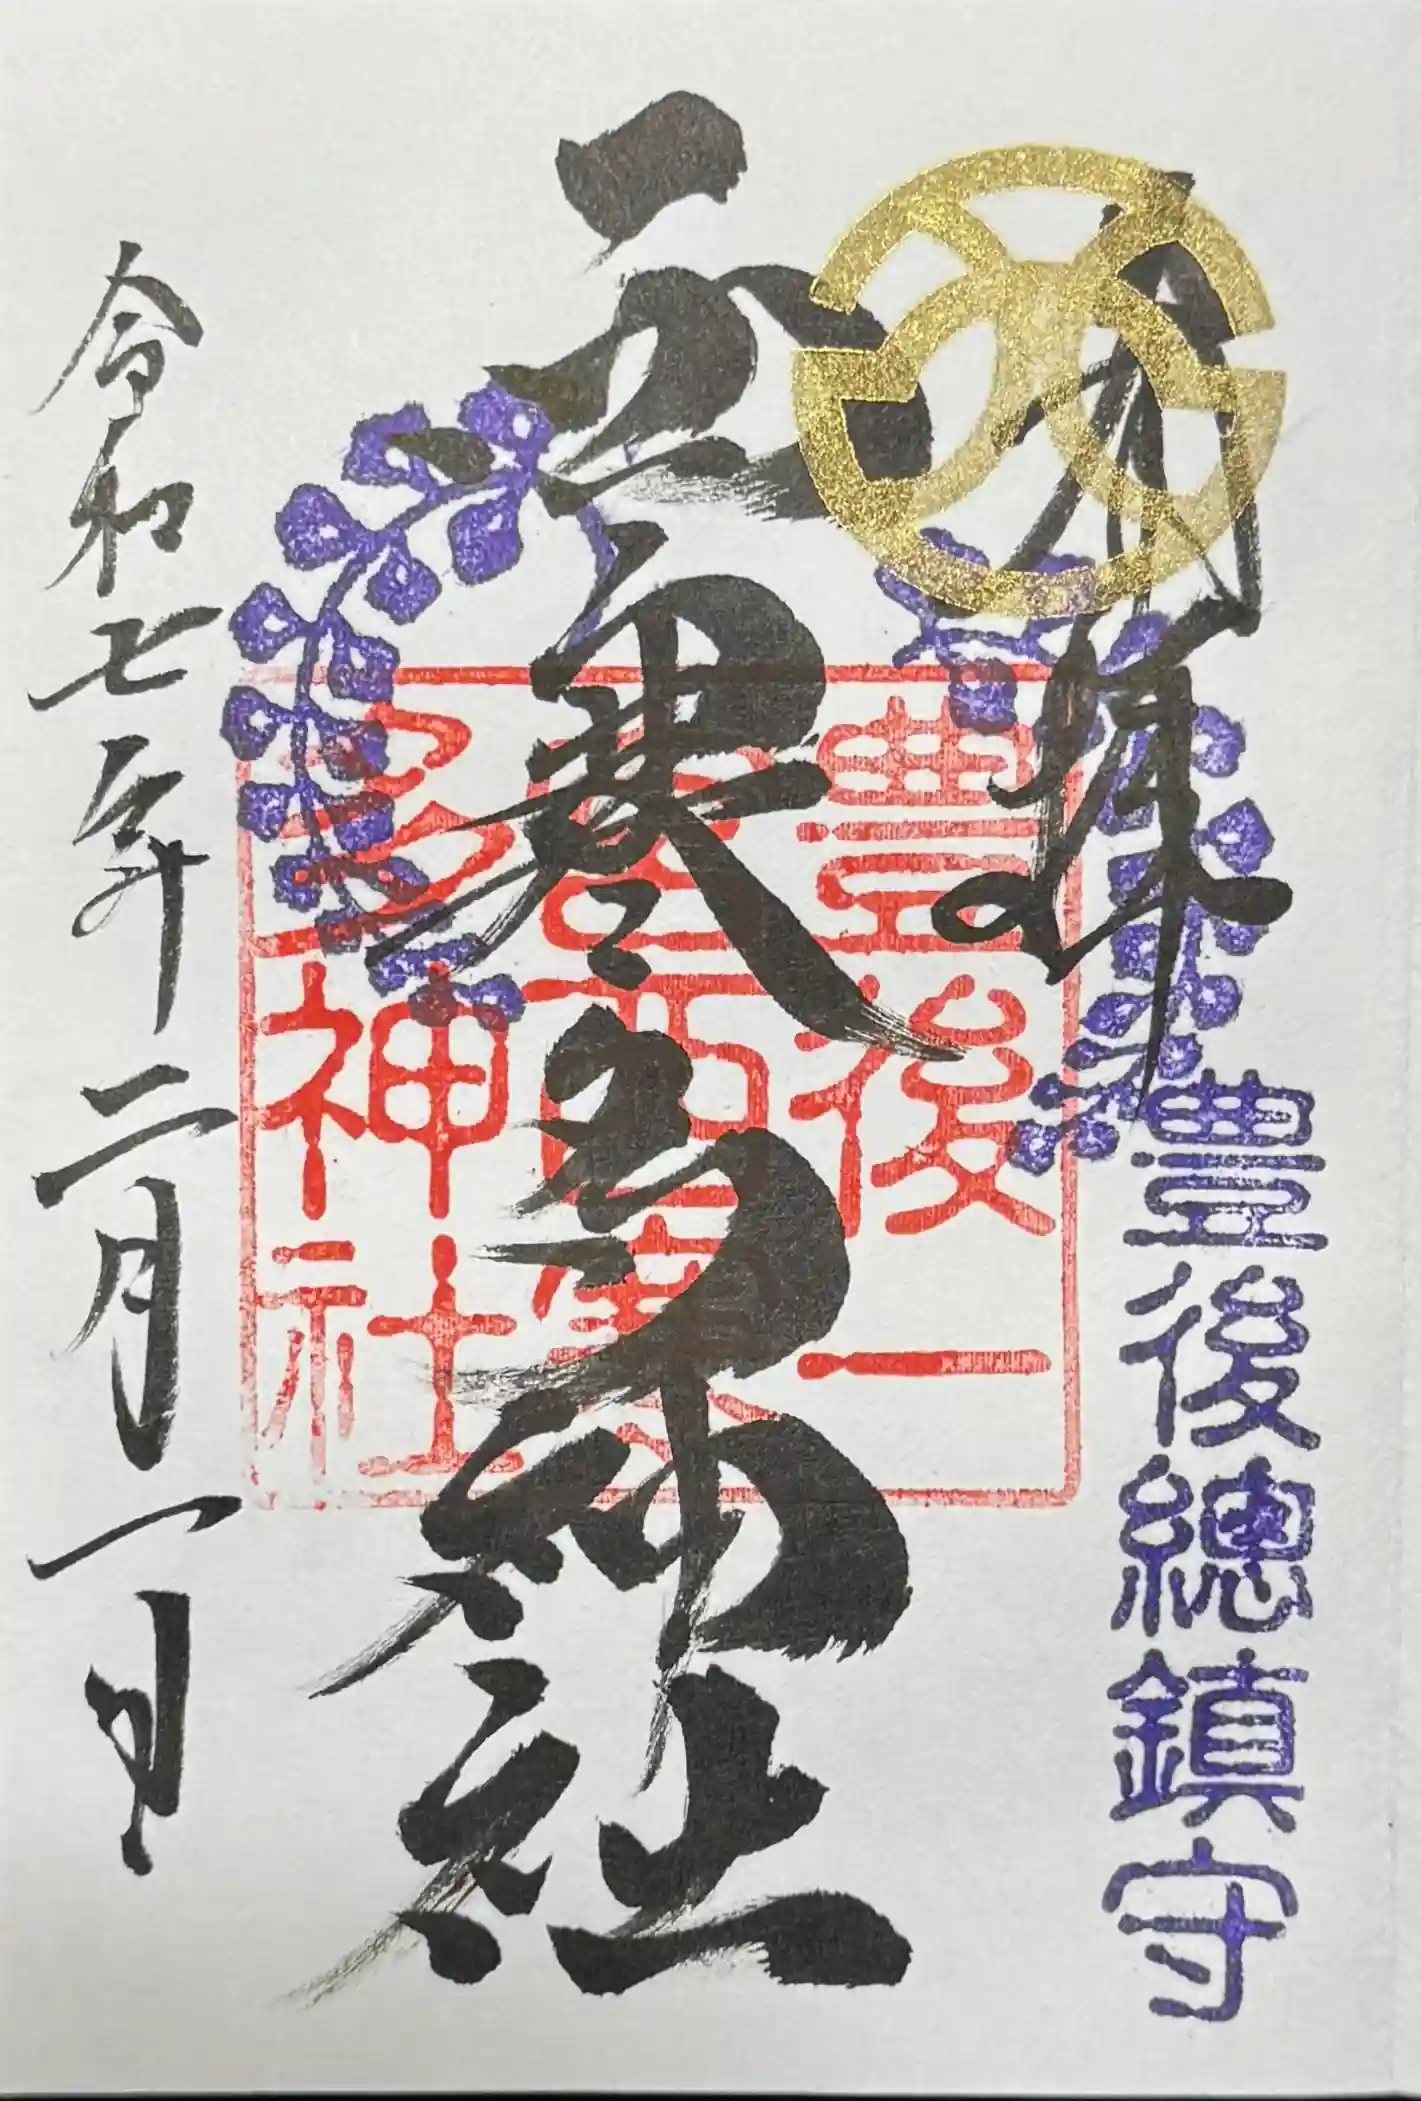 奉拝
豊後總鎮守
西寒多神社
豊後一
宮西寒
多神社
令和七年二月一日